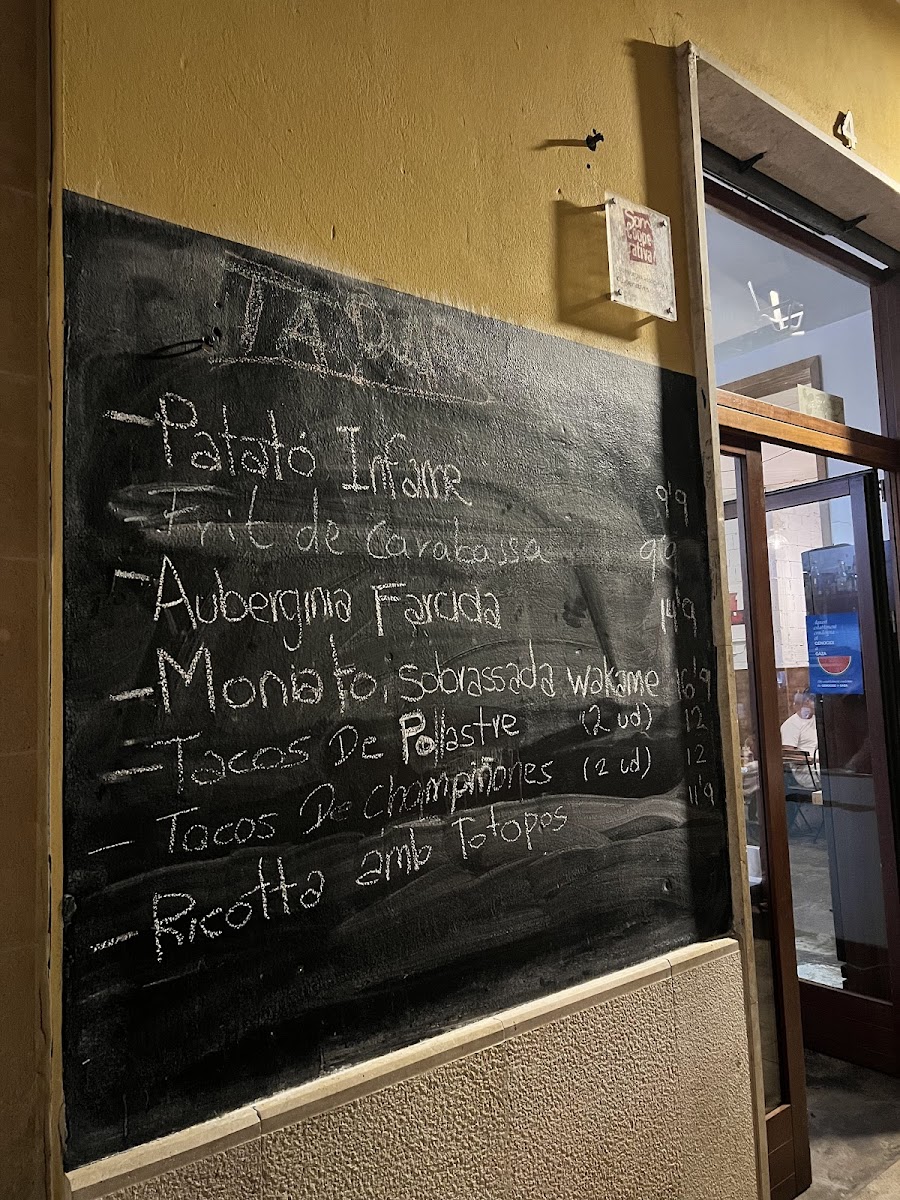 TAPA
- Patató Infame 9'9
- Frit de Carabassa 9'9
- Auberginia Farcida 14'9
- Moniato, sobrassada wakame 16'9
- Tacos De Pollastre (2 ud) 12
- Tacos De Champiñones (2 ud) 12
- Ricotta amb Totopos 11'9
Som
coope
rativa!
4
GENOCIDI
A
GAZA